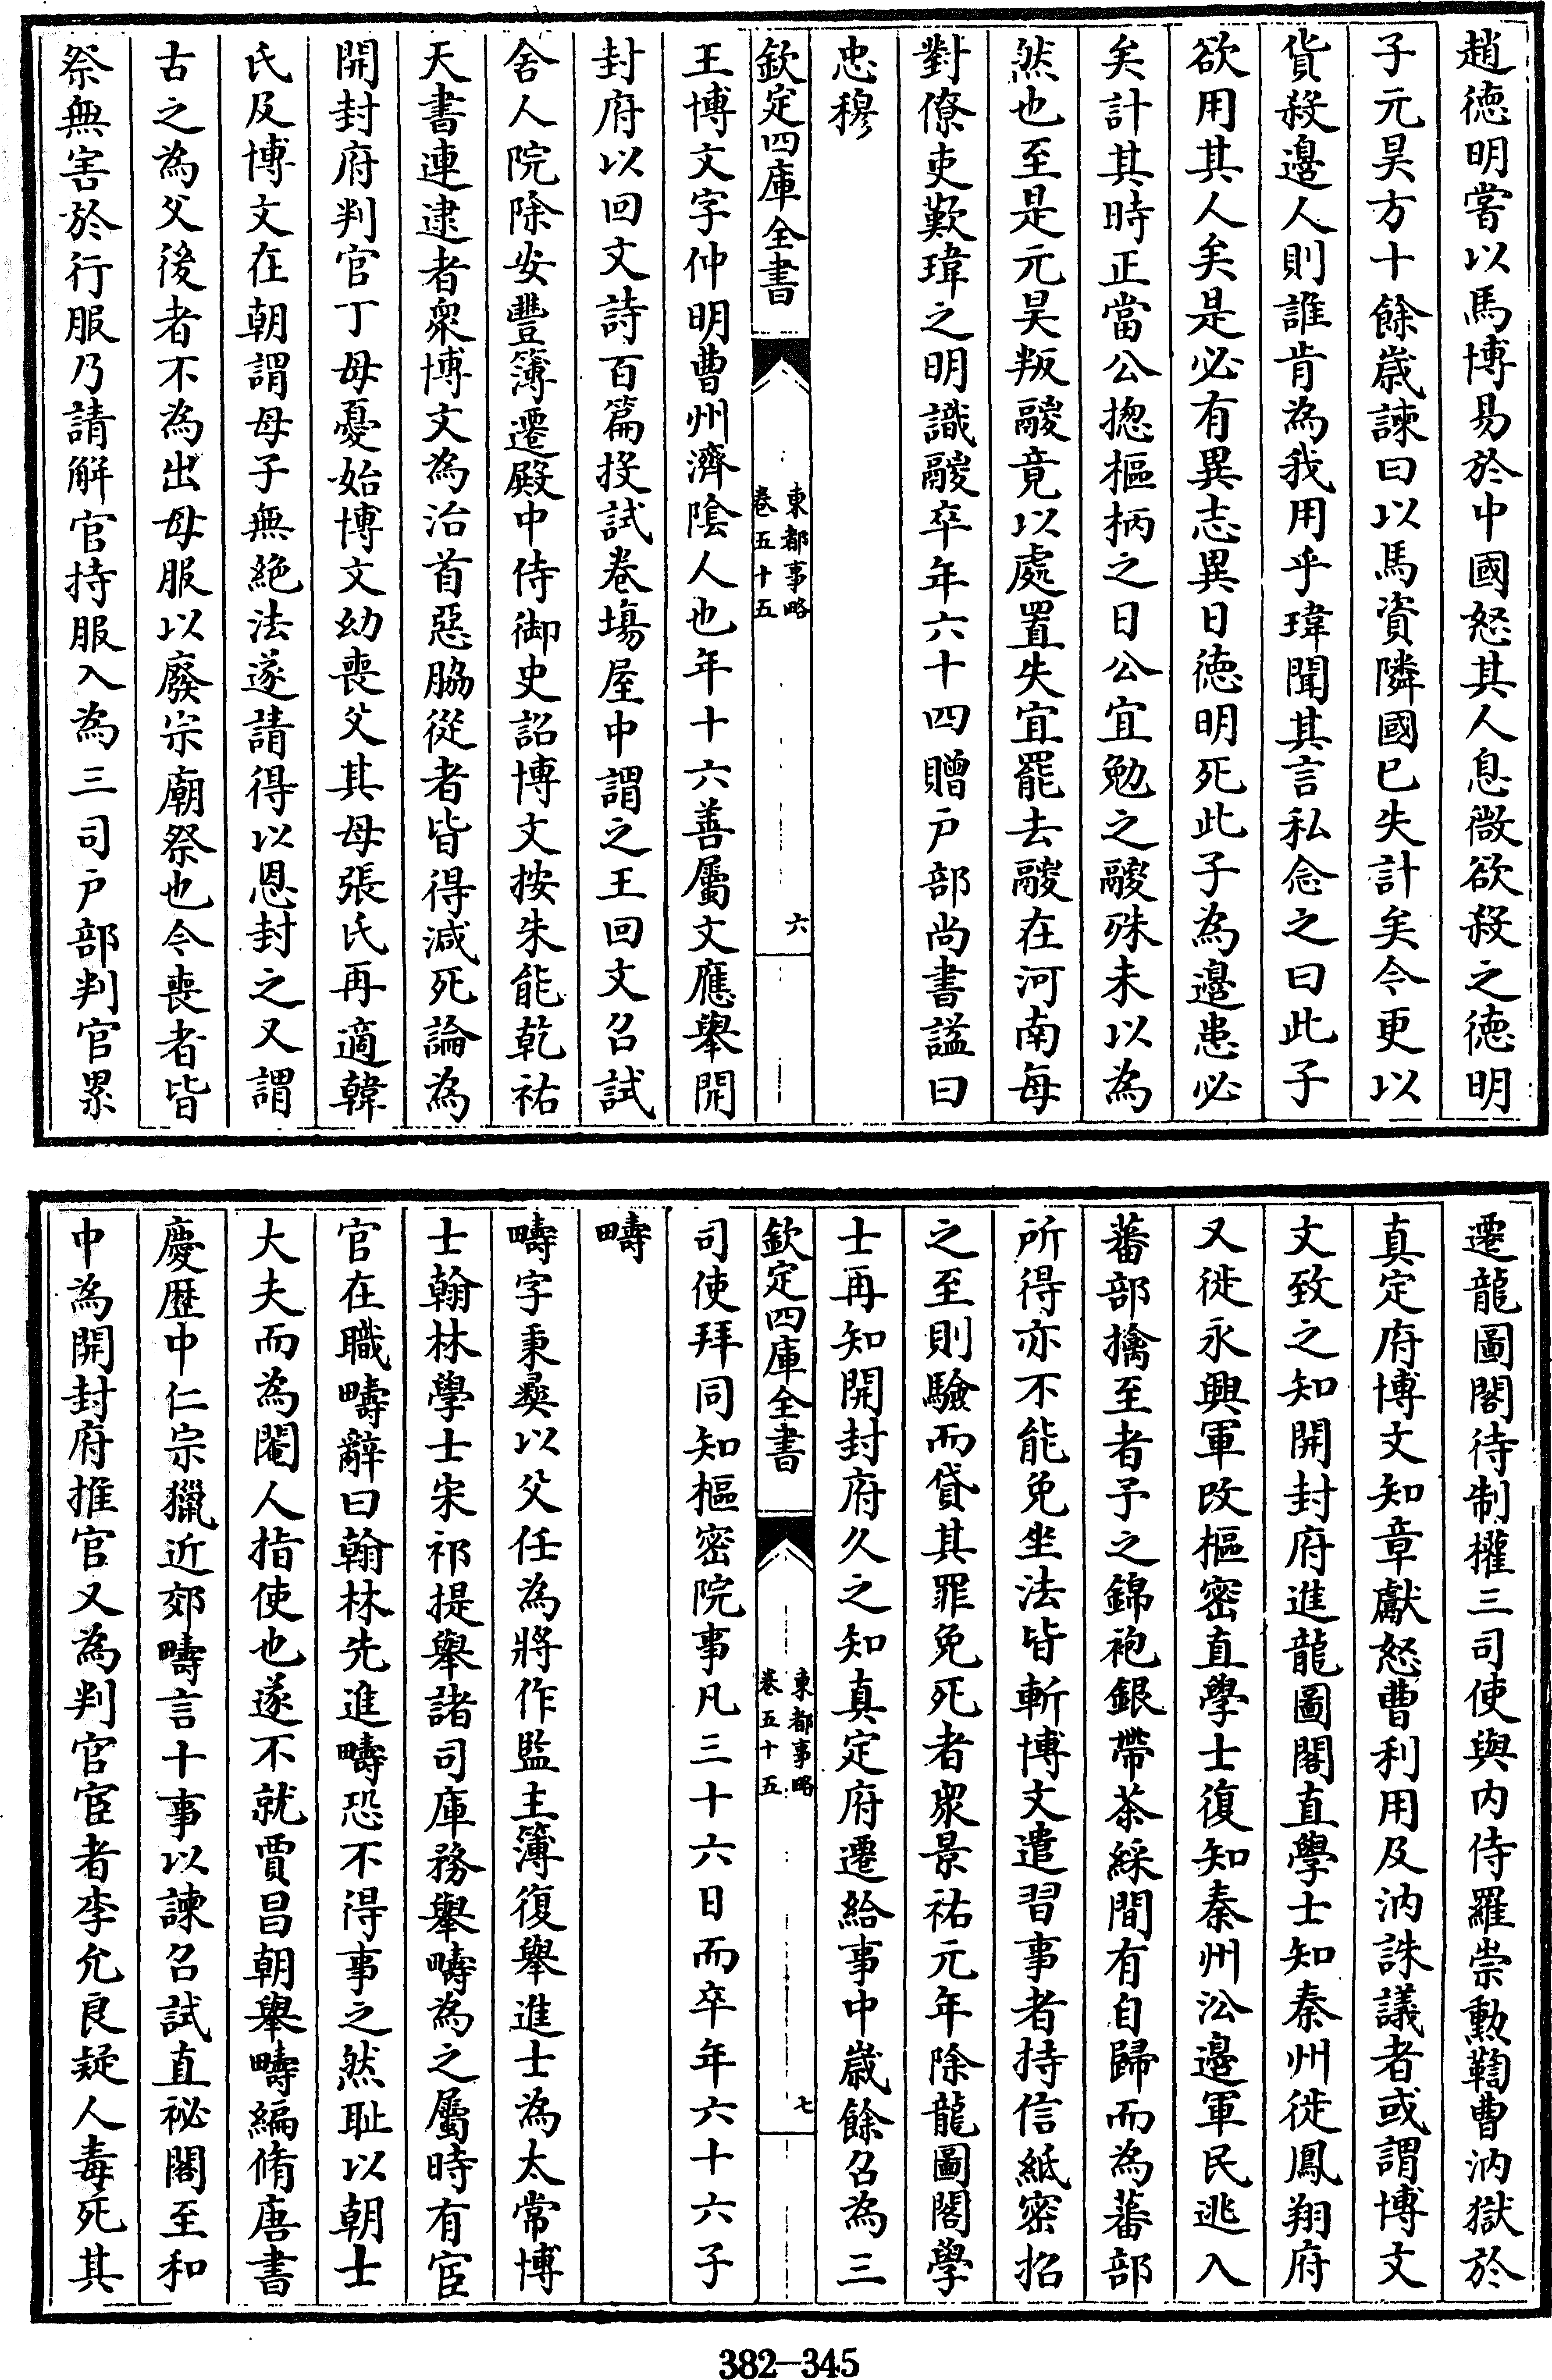 趙徳明嘗以馬博易於中國怒其人息微欲殺之徳明
子元昊方十餘歳諫曰以馬資隣國已失計矣今更以
貨殺邊人則誰肯為我用乎瑋聞其言私念之曰此子
欲用其人矣是必有異志異日徳明死此子為邊患必
矣計其時正當公揔樞柄之日公宜勉之鬷殊未以為
然也至是元昊叛鬷竟以處置失宜罷去鬷在河南每
對僚吏歎瑋之明識鬷卒年六十四贈户部尚書諡曰
忠穆
欽定四庫全書
東都事略
卷五十五
六
王博文字仲明曹州濟陰人也年十六善屬文應舉開
封府以回文詩百篇投試卷塲屋中謂之王回文召試
舍人院除安豐簿遷殿中侍御史詔博文按朱能乾祐
天書連逮者衆博文為治首惡脇從者皆得減死論為
開封府判官丁母憂始博文幼喪父其母張氏再適韓
氏及博文在朝謂母子無絶法遂請得以恩封之又謂
古之為父後者不為出母服以廢宗廟祭也今喪者皆
祭無害於行服乃請解官持服入為三司户部判官累
遷龍圖閣待制權三司使與内侍羅崇勲鞫曹汭獄於
真定府博文知章獻怒曹利用及汭誅議者或謂博文
文致之知開封府進龍圖閣直學士知秦州徙鳳翔府
又徙永興軍改樞密直學士復知秦州㳂邊軍民逃入
蕃部擒至者予之錦袍銀帶茶綵間有自歸而為蕃部
所得亦不能免坐法皆斬博文遣習事者持信紙密招
之至則驗而貸其罪免死者衆景祐元年除龍圖閣學
士再知開封府久之知真定府遷給事中歳餘召為三
欽定四庫全書
東都事略
卷五十五
七
司使拜同知樞密院事凡三十六日而卒年六十六子
疇
疇字秉彞以父任為將作監主簿復舉進士為太常博
士翰林學士宋祁提舉諸司庫務舉疇為之屬時有宦
官在職疇辭曰翰林先進疇恐不得事之然耻以朝士
大夫而為閹人指使也遂不就賈昌朝舉疇編脩唐書
慶歴中仁宗獵近郊疇言十事以諫召試直祕閣至和
中為開封府推官又為判官宦者李允良疑人毒死其
382-345